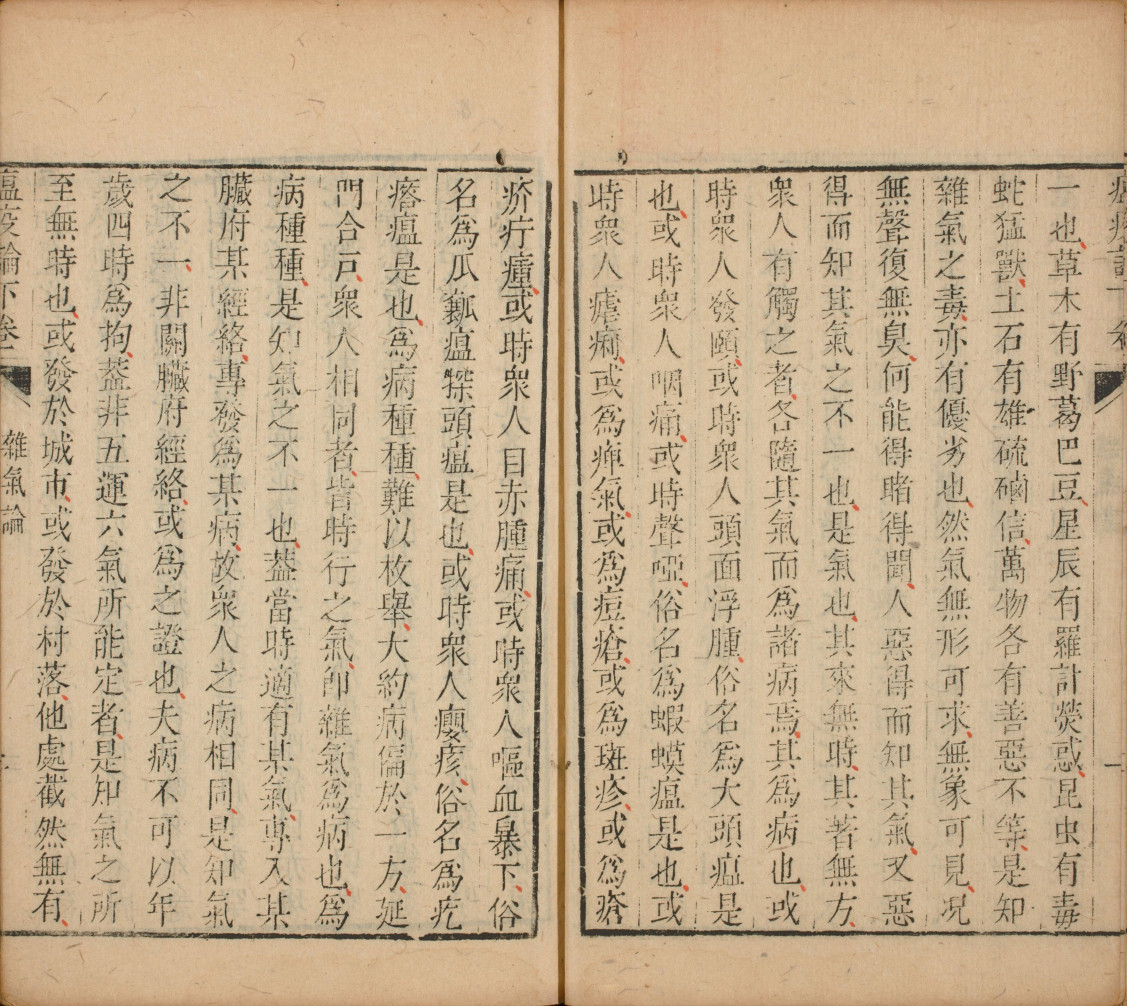 一也草木有野葛巴豆星辰有羅計熒惑昆虫有毒
蛇猛獸土石有雄硫硇信萬物各有善惡不等是知
雜氣之毒亦有優劣也然氣無形可求無象可見况
無聲復無臭何能得睹得聞人惡得而知其氣又惡
得而知其氣之不一也是氣也其來無時其著無方
衆人有觸之者各隨其氣而爲諸病焉其爲病也或
時衆人發頤或時衆人頭面浮腫俗名爲大頭瘟是
也或時衆人咽痛或時聲啞俗名爲蝦蟆瘟是也或
時衆人瘧痢或爲痺氣或爲痘瘡或爲斑疹或爲瘡
疥疔瘇或時衆人目赤腫痛或時衆人嘔血暴下俗
名爲瓜瓤瘟探頭瘟是也或時衆人癭痎俗名爲疙
瘩瘟是也爲病種種難以枚舉大約病偏於一方延
門合戸衆人相同者皆時行之氣即雜氣爲病也爲
病種種是知氣之不一也蓋當時適有某氣專入某
臟府某經絡專發爲某病故衆人之病相同是知氣
之不一非關臟府經絡或爲之證也夫病不可以年
歲四時爲拘蓋非五運六氣所能定者是知氣之所
至無時也或發於城市或發於村落他處截然無有
瘟疫論下卷 雜氣論